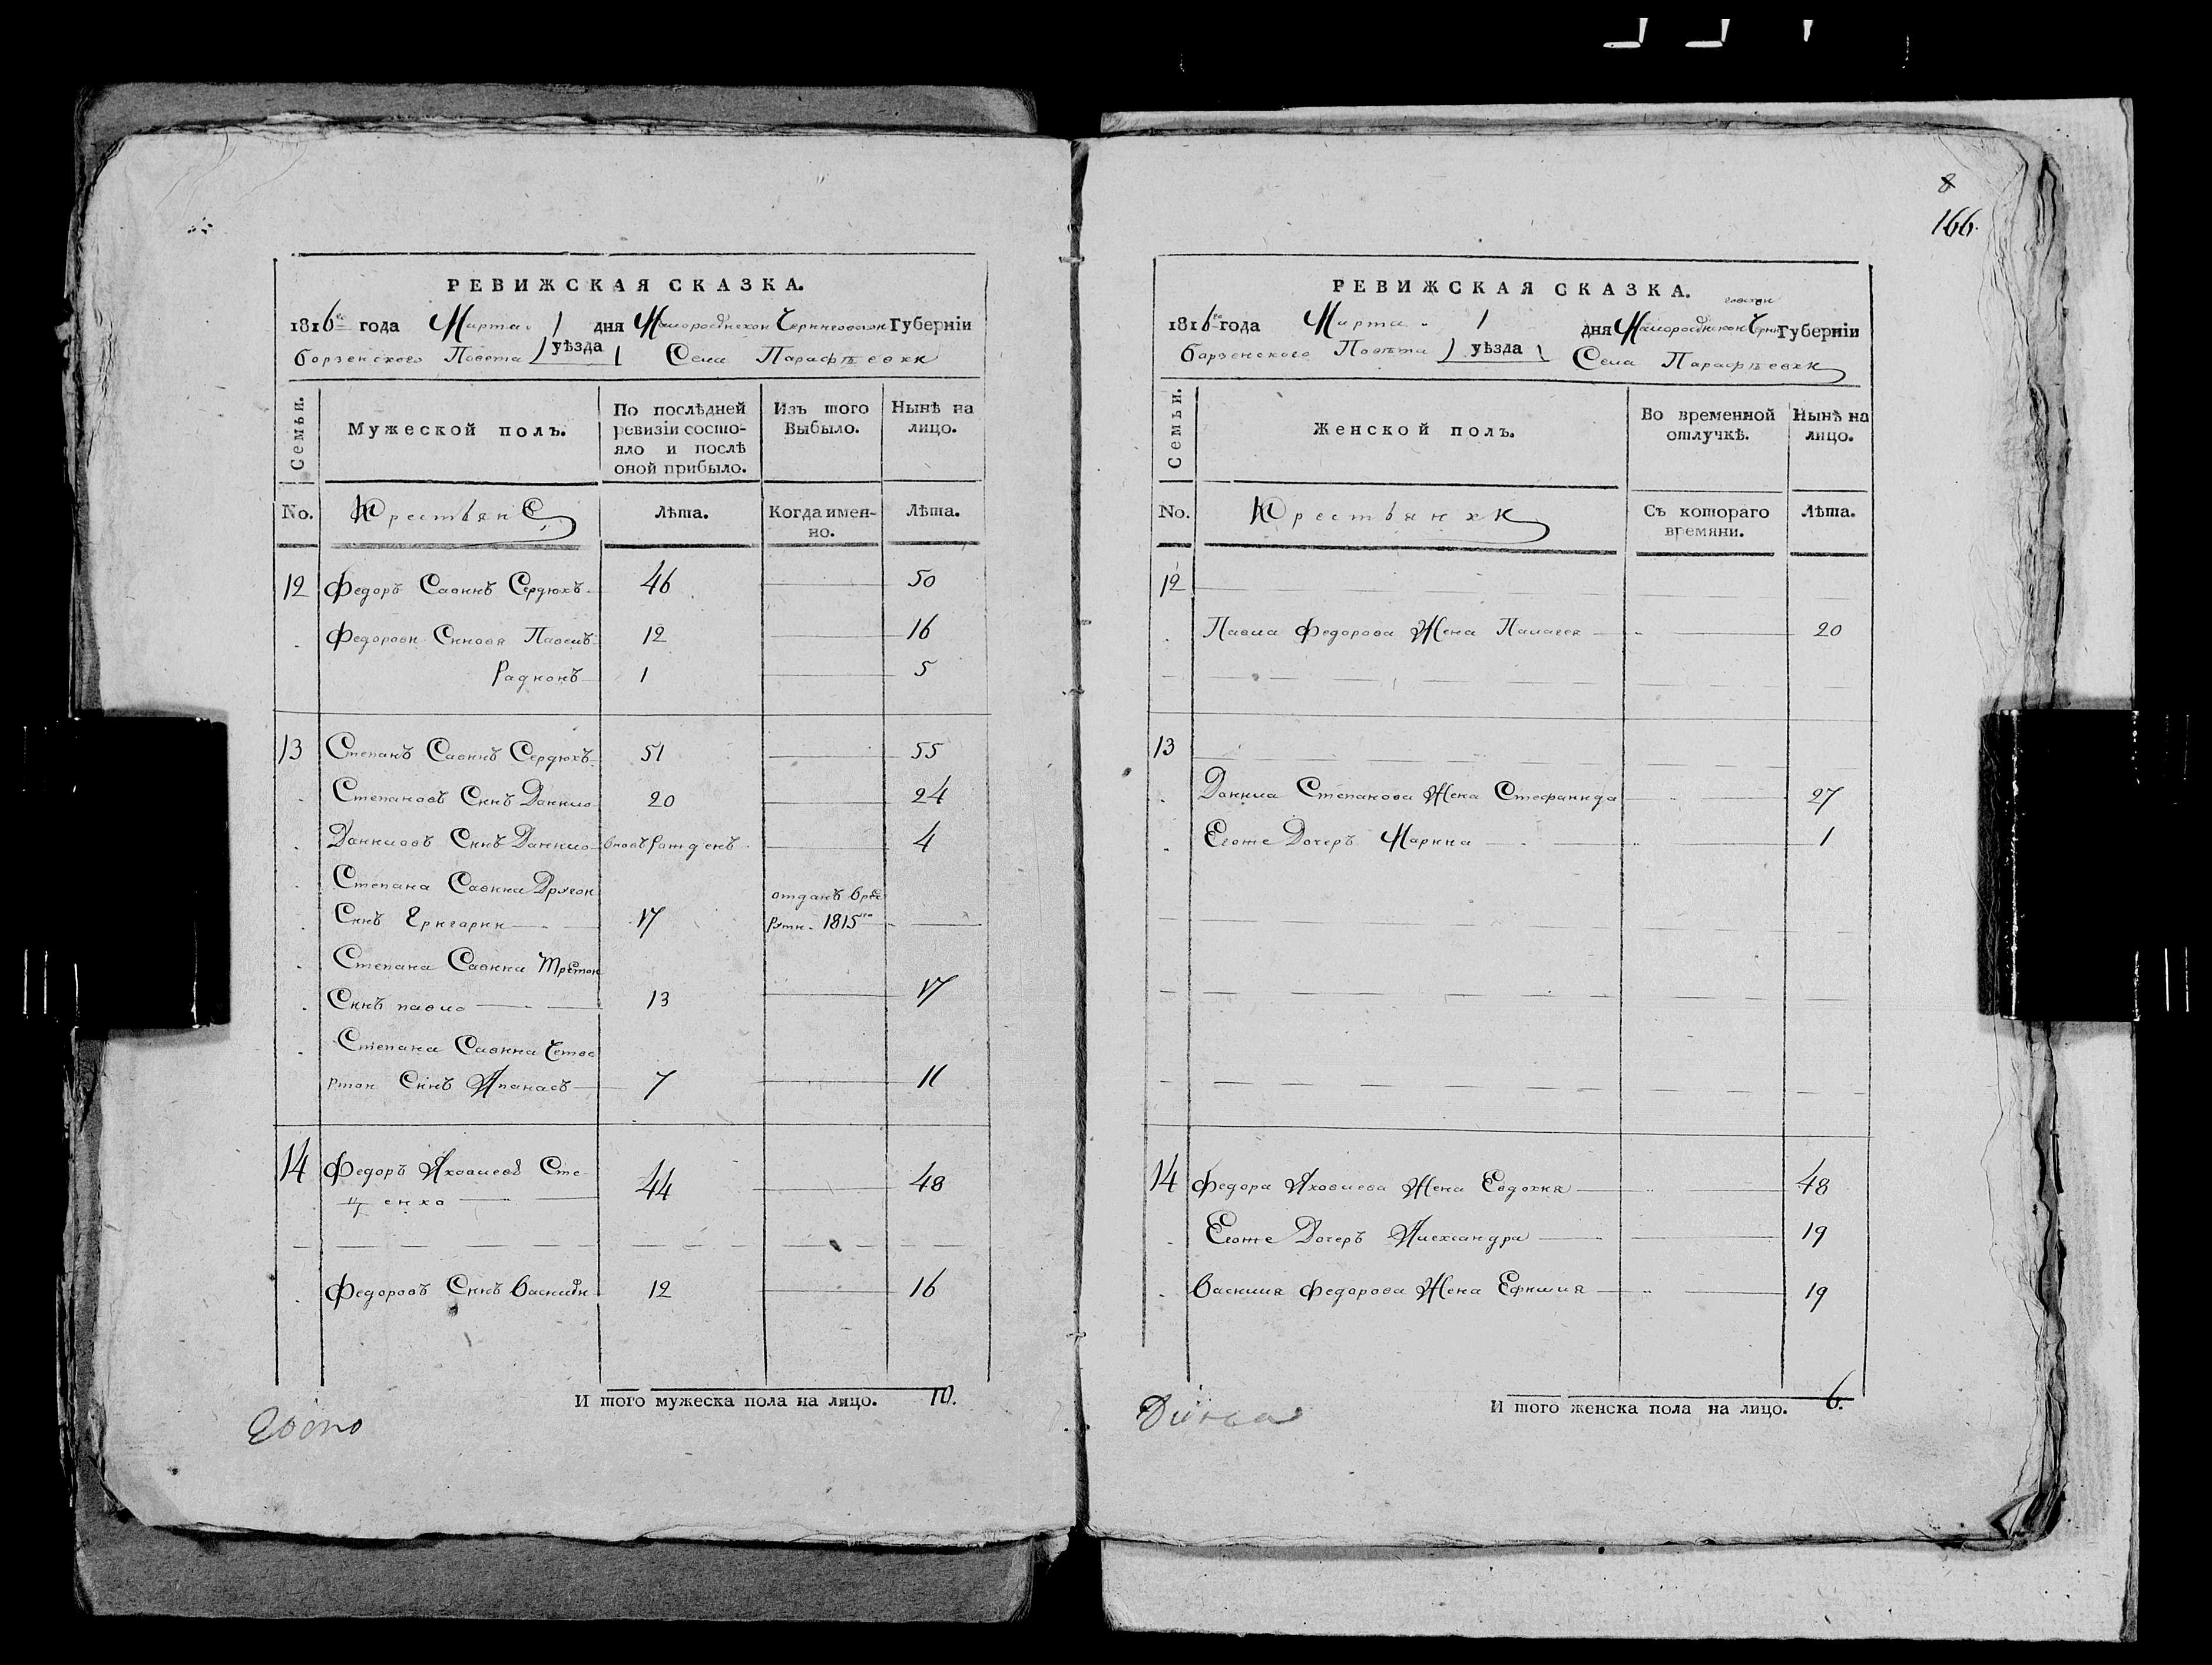 РЕВИЖСКАЯ СКАЗКА.
1816го года Марта 1 дня Малоросійской Черниговской Губерніи
борзенского Повета уѣзда Села Парафѣевки
Семьи.
Мужеской полъ.
По послѣдней ревизіи состо-
яло и послѣ оной прибыло.
Изъ того Выбыло.
Нынѣ на лицо.
No.
Крестьяне
Лѣта.
Когда имен-
но.
Лѣта.
12 Федоръ Савинъ Сердюкъ 46 50
Федорови Синовя Павелъ 12 16
Радионъ 1 5
13 Степанъ Савинъ Сердюкъ 51 55
Степановъ Синъ Данило 20 24
Даниловъ Синъ Данило вновъ рожденъ 4
Степана Савина Другои
Синъ Григарии 17 отданъ врек
рути. 1815го
Степана Савина Третои
Синъ павло 13 17
Степана Савина Четве
ртои Синъ Апанасъ 7 11
14 Федоръ Яковлевъ Сте
ценко 44 48
Федоровъ Синъ Василий 12 16
И того мужеска пола на лицо. 10.
8
166.
РЕВИЖСКАЯ СКАЗКА.
1816го года Марта 1 дня Малоросійской Черниговской Губерніи
борзенского Повѣта уѣзда Села Парафѣевки
Семьи.
Женской полъ.
Во временной отлучкѣ.
Нынѣ на лицо.
No.
Крестьянки
Съ котораго времяни.
Лѣта.
12
Павла Федорова Жена Палагея 20
13
Данила Степанова Жена Стефанида 27
Егоже Дочеръ Марина 1
14 Федора Яковлева Жена Евдокия 48
Егоже Дочеръ Александра 19
Василия Федорова Жена Ефимия 19
И того женска пола на лицо. 6.